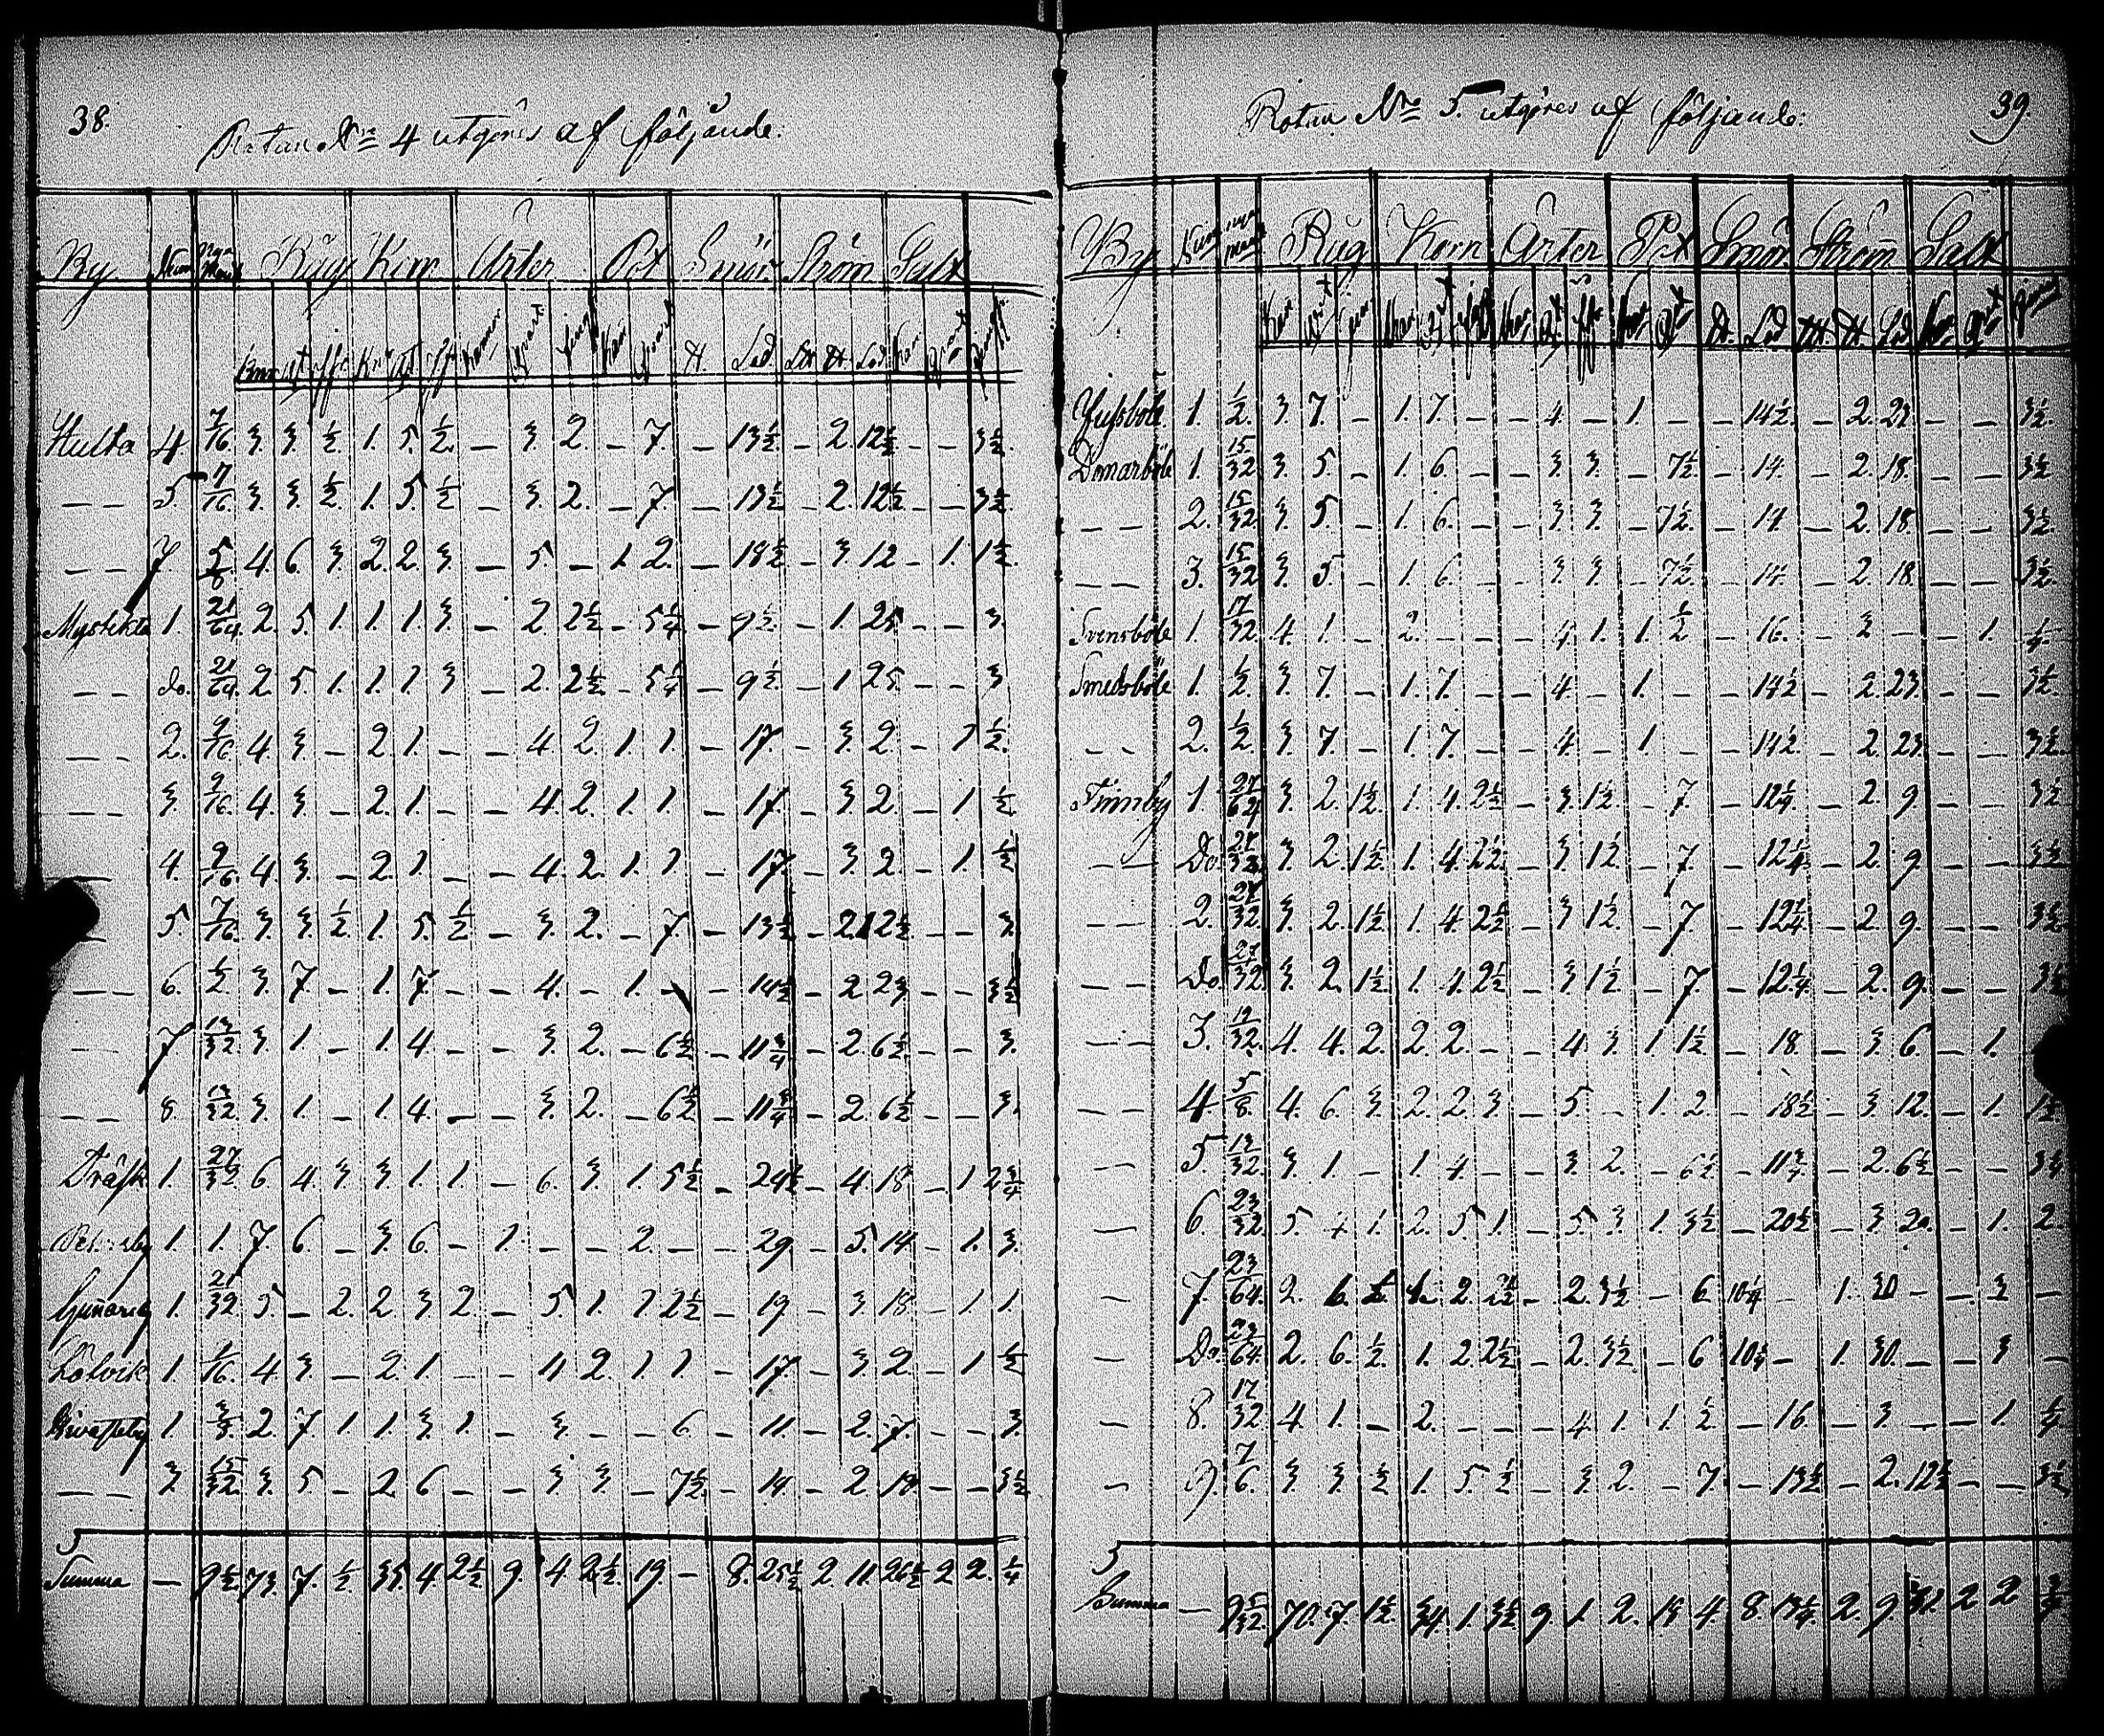 38.
Rotan No 4 utgöres af följande.
By Num Nya Mant Råg Korn Ärter Pot Smör Ström Salt
Hulta 4. 7/16 3. 3. 1/2. 1. 5. 1/2. – 3. 2. – 7. – 13 1/2 – 2. 12 1/2 – – 3 1/2.
– – 5. 7/16 3. 3. 1/2. 1. 5. 1/2 – 3. 2. – 7. – 13 1/2 – 2. 12 1/2 – – 3 1/2.
– – 7. 5/8 4. 6. 3. 2. 2. 3. – 5. – 1. 2. – 18 1/2 – 3. 12 – 1. 1 1/2.
1. 21/64. 2. 5. 1. 1. 1. 3 – 2. 2 1/2 – 5 1/4 – 9 1/2. – 1 25 – – 3.
– – do. 21/64. 2. 5. 1. 1. 1. 3 – 2. 2 1/2 – 5 1/4 – 9 1/2. – 1 25. – – 3
– – 2. 9/16 4. 3. – 2 1. – – 4. 2. 1. 1. – 17. – 3. 2. – 1 1/2.
– – 3. 9/16. 4. 3. – 2. 1. – – 4. 2. 1. 1. – 17. – 3. 2. – 1. 1/2.
– 4. 9/16. 4. 3. – 2. 1. – – 4. 2. 1. 1. – 17. – 3. 2. – 1. 1/2
– 5 7/16. 3. 3. 1/2 1. 5. 1/2 – 3. 2. – 7. – 13 1/2 – 2. 12 1/2. – – 3.
– – 6. 1/2. 3. 7. – 1. 7. – – 4. – 1. – – 14 1/2 – 2 23 – – 3 1/2
– 7. 13/32. 3. 1. – 1. 4. – – 3. 2. – 6 1/2 – 11 3/4 – 2. 6 1/2. – – 3.
– – 8. 13/32. 3. 1. – 1. 4. – – 3. 2. – 6 1/2 – 11 3/4 – 2. 6 1/2 – – 3.
Träsk 1. 27/32. 6. 4. 3 3 1. 1. – 6. 3. 1. 5 1/2 – 24 1/2 – 4. 18 – 1 2 3/4
1. 1. 7. 6. – 3. 6. – 1. – – 2. – – 29. – 5. 14. – 1. 3.
1. 21/32 5. – 2. 2 3 2. – 5 1. 1 2 1/2 – 19 – 3 18 – 1. 1.
Löfvik 1 4. 3. – 2. 1. – – 4 2. 1 1. – 17. – 3 2. – 1 1/2
1. 2. 7. 1 1. 3. 1. – 3. – – 6. – 11. – 2. 7. – – 3.
– – 2 15/32 3. 5. – 2 6 – – 3. 3. – 7 1/2. – 14. – 2. 18 – – 3 1/2
Summa – 9 1/2. 73. 7. 1/2. 35. 4. 2 1/2. 9. 4 2 1/2. 19. – 8. 25 1/2 2. 11. 26 1/2 2 2. 1/4
39.
Rotan No 5. utgöres af följande:
By Num nya Mant Råg Korn Ärter Pot Smör Ström Salt
1. 1/2. 3 7. – 1. 7. – – 4. – 1. – – 14 1/2. – 2. 23 – – 3 1/2.
Domarböle 1. 15/32 3. 5 – 1. 6 – – 3 3. – 7 1/2 – 14. – 2. 18. – – 3 1/2
– – 2. 15/32 3. 5 – 1. 6. – – 3 3. – 7 1/2. – 14 – 2. 18 – – 3 1/2
– – 3. 15/32 3. 5 – 1. 6. – – 3 3 – 7 1/2. – 14. – 2. 18 – – 3 1/2
Svensböle 1. 17/32 4. 1. – 2. – – – 4 1. 1. 1/2 – 16. – 3 – – 1. 1/4
Smedsböle 1. 1/2. 3. 7. – 1. 7. – – 4. – 1. – – 14 1/2 – 2. 23. – – 3 1/2.
– – 2. 1/2 3 7. – 1. 7. – – 4 – 1 – – 14 1/2. – 2. 23 – – 3 1/2.
Finnby 1 27/64 3. 2. 1 1/2. 1. 4. 2 1/2 – 3 1 1/2. – 7. – 12 1/4. – 2. 9. – – 3 1/2
– – Do. 27/32 3 2. 1 1/2. 1. 4. 2 1/2. – 3 1 1/2 – 7. – 12 1/4 – 2. 9 – – 3 1/2
– – 2. 27/32 3. 2. 1 1/2 1. 4. 2 1/2 – 3 1 1/2. – 7. – 12 1/4. – 2. 9. – – 3 1/2
– – Do. 27/32 3. 2. 1 1/2 1. 4. 2 1/2 – 3 1 1/2 – 7. – 12 1/4. – 2. 9. – – 3 1/2
– – 3. 19/32. 4. 4. 2. 2. 2. – – 4. 3. 1. 1 1/2 – 18. – 3. 6. – 1.
– – 4 5/8. 4. 6. 3. 2. 2. 3 – 5 – 1. 2. – 18 1/2 – 3 12. – 1. 1 1/2
– 5. 13/32. 3. 1. – 1. 4. – – 3. 2. – 6 1/2 – 11 3/4. – 2. 6 1/2 – –
– 6. 23/32. 5. 4 1. 2. 5. 1. – 5 3. 1. 3 1/2 – 20 1/2 – 3. 20. – 1. 2.
– 7. 23/64. 2. 6. 1/2. 1. 2. 2 1/2 – 2. 3 1/2 – 6 10 1/4 – 1. 30 – – 3 –
– Do. 23/64. 2. 6. 1/2. 1. 2. 2 1/2 – 2. 3 1/2. – 6 10 1/4 – 1. 30. – – 3 –
– 8. 17/32 4. 1. – 2. – – – 4. 1. 1. 1/2 – 16. – 3. – – 1. 1/4
– 9. 7/6. 3 3. 1/2 1. 5. 1/2 – 3. 2. – 7. – 13 1/2 – 2. 12 1/2 – – 3 1/2
Summa – 9 5/32. 70. 7. 1 1/2. 34. 1. 3 1/2 9 1. 2. 18 4. 8. 13 1/4. 2. 9. 31. 2 2.